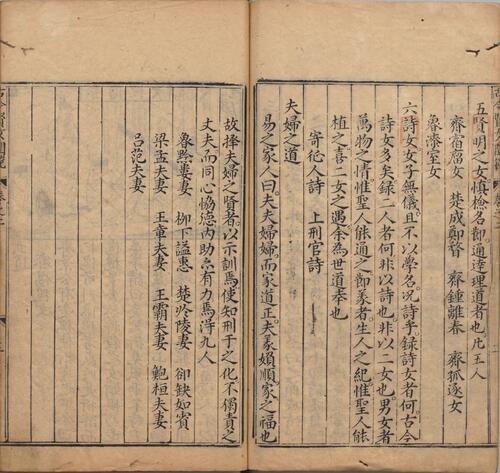 五賢明之女慎檢名節通達理道者也凡五人
齊宿瘤女 楚成鄭瞀 齊鍾離春 齊孤逐女
魯漆室女
六詩女女子無儀且不以學名况詩乎録詩女者何古今
詩女多矣録二人者何非以詩也非以二女也男女者
萬物之情惟聖人能通之節義者生人之紀惟聖人能
植之喜二女之遇余為世道幸也
寄征人詩 上刑官詩
夫婦之道
易之家人曰夫夫婦婦而家道正夫義婦順家之福也
故擇夫婦之賢者以示訓焉使知刑于之化不獨責之
丈夫而同心恊德内助亦有力焉得九人
魯黔婁妻 柳下謚惠 楚於陵妻 卻缺如賓
梁孟夫妻 王章夫妻 王霸夫妻 鮑桓夫妻
吕范夫妻